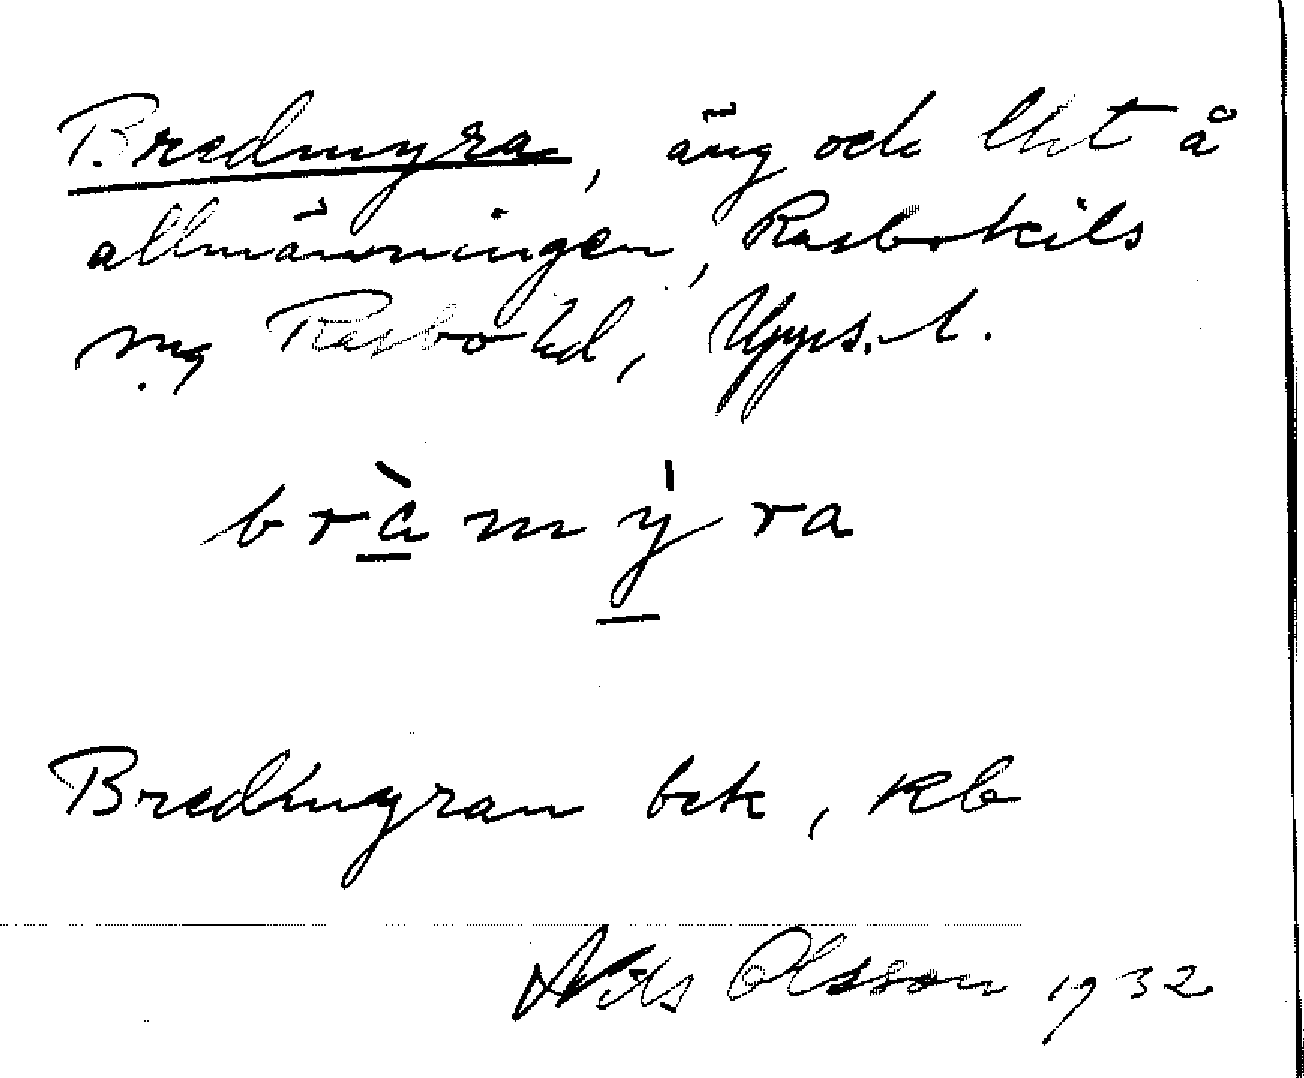 Bredmyra, äng och lht å
allmänningen, Rasbokils
sn, Rasbo hd, Upps. l.
bràmýra
Bredmyran bek, Kb
Nils Olsson 1932